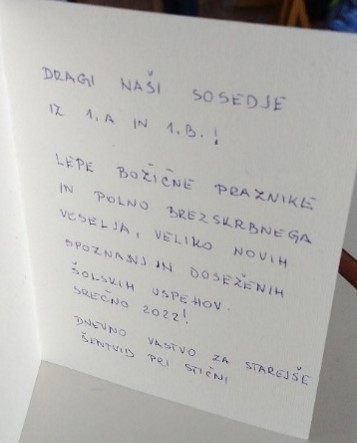 DRAGI NAŠI SOSEDJE
IZ 1.A IN 1.B.!
LEPE BOŽIČNE PRAZNIKE
IN POLNO BREZSKRBNEGA
VESELJA, VELIKO NOVIH
SPOZNANJ IN DOSEŽENIH
ŠOLSKIH USPEHOV.
SREČNO 2022!
DNEVNO VASTVO ZA STAREJŠE
ŠENTVID PRI STIČNI